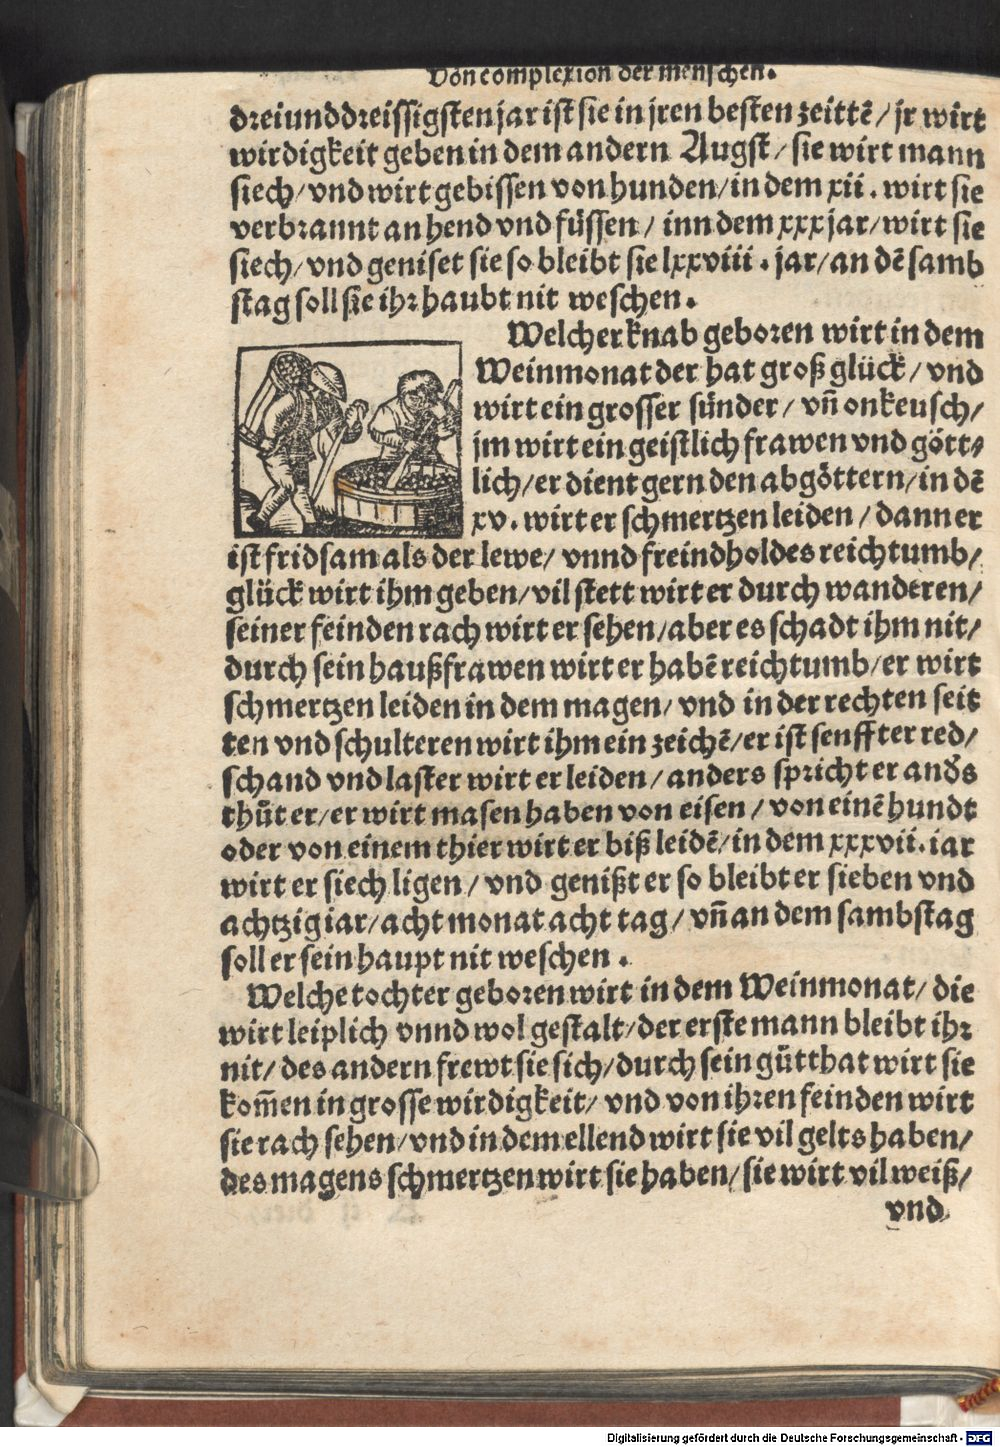 Von complexion der menschen.
dreiunddreissigsten jar ist sie in jren besten zeittē / jr wirt
wirdigkeit geben in dem andern Augst / sie wirt mann
siech / vnd wirt gebissen von hunden / in dem xii. wirt sie
verbrannt an hend vnd füssen / inn dem xxx jar / wirt sie
siech / vnd geniset sie so bleibt sie lxxviii. jar / an dē samb
stag soll sie ihr haubt nit weschen.
Welcher knab geboren wirt in dem
Weinmonat der hat groß glück / vnd
wirt ein grosser sünder / vn̄ onkeusch /
jm wirt ein geistlich frawen vnd gött⸗
lich / er dient gern den abgöttern / in dē
xv. wirt er schmertzen leiden / dann er
ist fridsam als der lewe / vnnd freindholdes reichtumb /
glück wirt ihm geben / vil stett wirt er durch wanderen /
seiner feinden rach wirt er sehen / aber es schadt ihm nit /
durch sein haußfrawen wirt er habē reichtumb / er wirt
schmertzen leiden in dem magen / vnd in der rechten seit
ten vnd schulteren wirt ihm ein zeichē / er ist senffter red /
schand vnd laster wirt er leiden / anders spricht er anðs
thůt er / er wirt masen haben von eisen / von einē hundt
oder von einem thier wirt er biß leidē / in dem xxxvii. iar
wirt er siech ligen / vnd genißt er so bleibt er sieben vnd
achtzig iar / acht monat acht tag / vn̄ an dem sambstag
soll er sein haupt nit weschen.
Welche tochter geboren wirt in dem Weinmonat / die
wirt leiplich vnnd wol gestalt / der erste mann bleibt ihr
nit / des andern frewt sie sich / durch sein gůtthat wirt sie
kom̄en in grosse wirdigkeit / vnd von ihren feinden wirt
sie rach sehen / vnd in dem ellend wirt sie vil gelts haben /
des magens schmertzen wirt sie haben / sie wirt vil weiß /
vnd
Digitalisierung gefördert durch die Deutsche Forschungsgemeinschaft - DFG